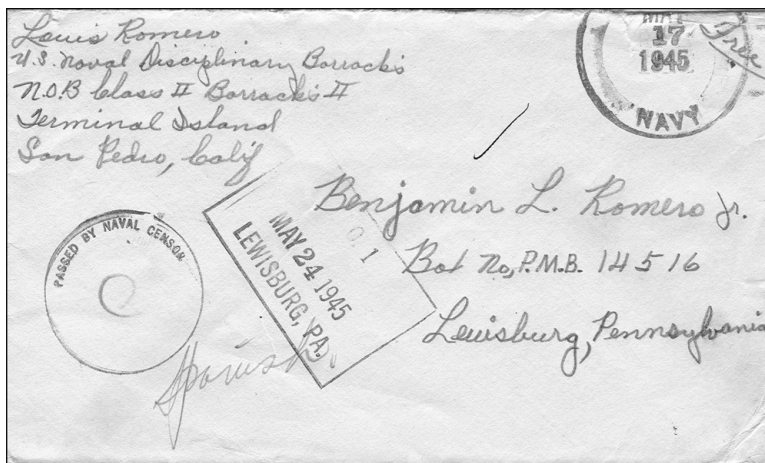 Louis Romero
U.S. Naval Disciplinary Barracks
N.O.B Class II Barracks II
Terminal Island
San Pedro, Calif
17
1945
NAVY
Free
Benjamin L. Romero Jr.
Box No, P.M.B. 14516
Lewisburg, Pennsylvania
PASSED BY NAVAL CENSOR
MAY 24 1945
LEWISBURG, PA.
Spanish